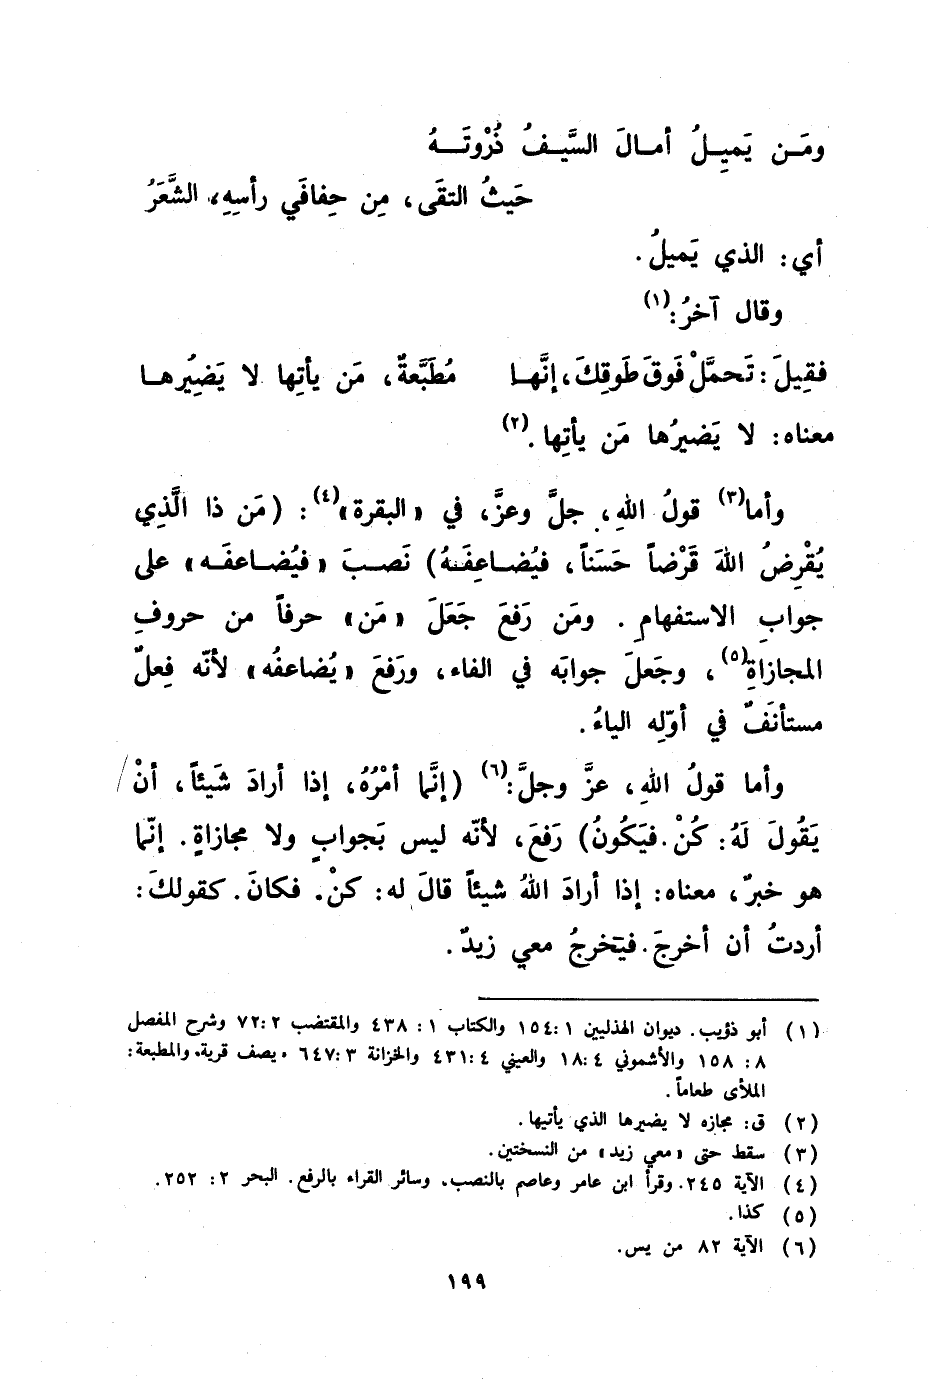 ومَـن يَميِـلُ أمـالَ السَّيـفُ ذُرْوتَـــهُ
حَيثُ التقَى، مِن حِفافَي رأسِهِ، الشَّعَرُ
أي: الذي يَميلُ.
وقال آخرُ:(١)
فقِيلَ: تَحمَّلْ فَوقَ طَوقِكَ، إنَّهـا مُطَبَّعةٌ، مَن يأتِها لا يَضِيُرهـا
معناه: لا يَضيرُها مَن يأتِها.(٢)
وأما(٣) قولُ اللهِ، جلَّ وعزَّ، في «البقرة»(٤): (مَن ذا الَّذِي
يُقْرِضُ اللهَ قَرْضاً حَسَناً، فيُضـاعِفَـهُ) نَصـبَ «فيُضـاعفَـه» على
جوابِ الاستفهامِ. ومَن رَفعَ جَعَلَ «مَن» حرفاً من حروفِ
المجازاةِ(٥)، وجَعلَ جوابَه في الفاء، ورَفعَ «يُضاعفُه» لأنّه فِعلٌ
مستأنَفٌ في أوّلِه الياءُ.
وأما قولُ اللهِ، عزَّ وجلَّ:(٦) (إنَّما أمْرُهُ، إذا أرادَ شَيئاً، أنْ/
يَقُولَ لَهُ: كُنْ. فيَكُونُ) رَفعَ، لأنّه ليس بَجوابٍ ولا مجازاةٍ. إنّما
هو خبرٌ، معناه: إذا أرادَ اللهُ شيئاً قالَ له: كنْ. فكانَ. كقولكَ:
أردتُ أن أخرجَ. فيَخرجُ معي زيدٌ.
(١) أبو ذؤيب. ديوان الهذليين ١: ١٥٤ والكتاب ١: ٤٣٨ والمقتضب ٢: ٧٢ وشرح المفصل
٨: ١٥٨ والأشموني ٤: ١٨ والعيني ٤: ٤٣١ والخزانة ٣: ٦٤٧. يصف قرية. والمطبعة:
الملأى طعاماً.
(٢) ق: مجازه لا يضيرها الذي يأتيها.
(٣) سقط حتى «معي زيد» من النسختين.
(٤) الآية ٢٤٥. وقرأ ابن عامر وعاصم بالنصب. وسائر القراء بالرفع. البحر ٢: ٢٥٢.
(٥) كذا.
(٦) الآية ٨٢ من يس.
١٩٩